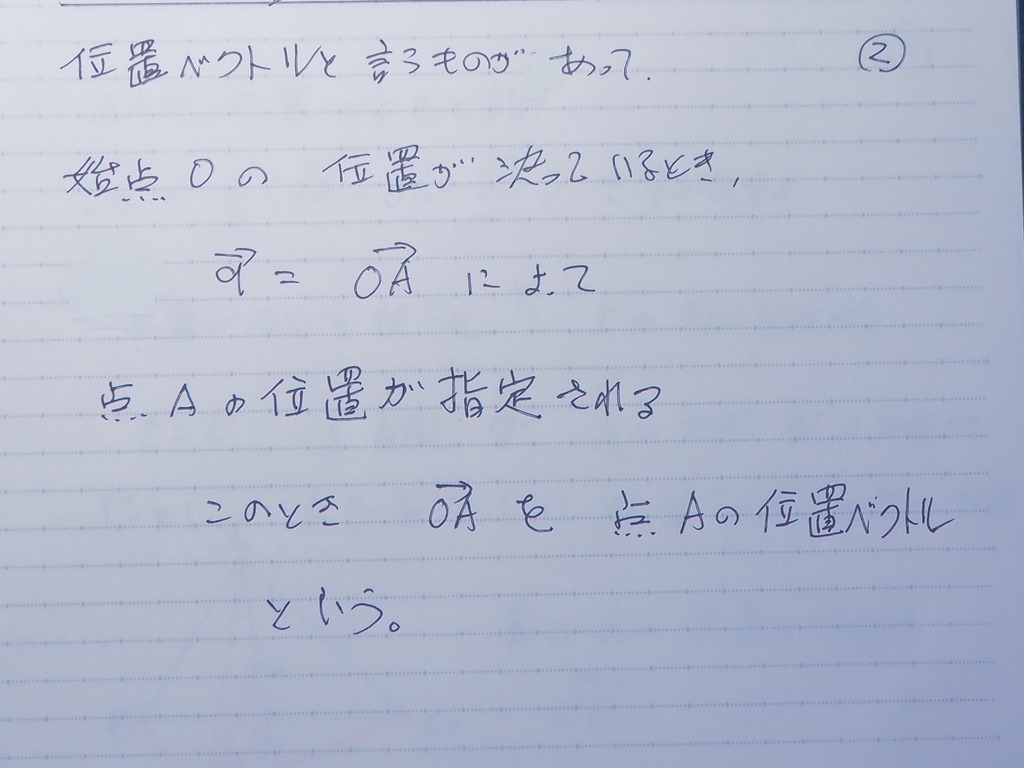 位置ベクトルと言うものがあって. ②
始点 O の 位置が 決っているとき,
$\vec{a}$ = $\overrightarrow{OA}$ によって
点 A の位置が指定される
このとき $\overrightarrow{OA}$ を 点 A の位置ベクトル
という。